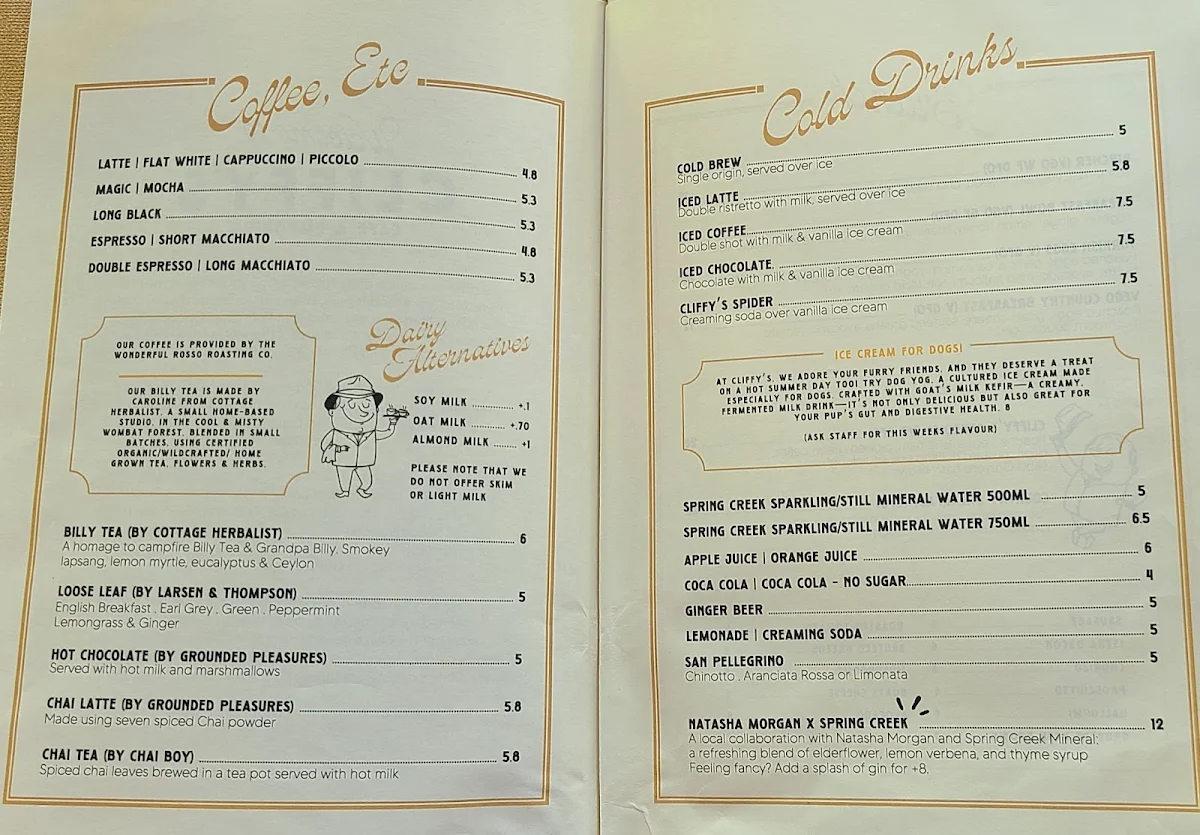 Coffee, Etc
LATTE | FLAT WHITE | CAPPUCCINO | PICCOLO 4.8
MAGIC | MOCHA 5.3
LONG BLACK 5.3
ESPRESSO | SHORT MACCHIATO 4.8
DOUBLE ESPRESSO | LONG MACCHIATO 5.3
OUR COFFEE IS PROVIDED BY THE
WONDERFUL ROSSO ROASTING CO.
OUR BILLY TEA IS MADE BY
CAROLINE FROM COTTAGE
HERBALIST. A SMALL HOME-BASED
STUDIO, IN THE COOL & MISTY
WOMBAT FOREST. BLENDED IN SMALL
BATCHES, USING CERTIFIED
ORGANIC/WILDCRAFTED/ HOME
GROWN TEA, FLOWERS & HERBS.
Dairy
Alternatives
SOY MILK +.1
OAT MILK +.70
ALMOND MILK +1
PLEASE NOTE THAT WE
DO NOT OFFER SKIM
OR LIGHT MILK
BILLY TEA (BY COTTAGE HERBALIST) 6
A homage to campfire Billy Tea & Grandpa Billy. Smokey
lapsang, lemon myrtle, eucalyptus & Ceylon
LOOSE LEAF (BY LARSEN & THOMPSON) 5
English Breakfast . Earl Grey . Green . Peppermint
Lemongrass & Ginger
HOT CHOCOLATE (BY GROUNDED PLEASURES) 5
Served with hot milk and marshmallows
CHAI LATTE (BY GROUNDED PLEASURES) 5.8
Made using seven spiced Chai powder
CHAI TEA (BY CHAI BOY) 5.8
Spiced chai leaves brewed in a tea pot served with hot milk
Cold Drinks
COLD BREW 5
Single origin, served over ice
ICED LATTE 5.8
Double ristretto with milk, served over ice
ICED COFFEE 7.5
Double shot with milk & vanilla ice cream
ICED CHOCOLATE 7.5
Chocolate with milk & vanilla ice cream
CLIFFY'S SPIDER 7.5
Creaming soda over vanilla ice cream
ICE CREAM FOR DOGS!
AT CLIFFY'S, WE ADORE YOUR FURRY FRIENDS, AND THEY DESERVE A TREAT
ON A HOT SUMMER DAY TOO! TRY DOG YOG, A CULTURED ICE CREAM MADE
ESPECIALLY FOR DOGS. CRAFTED WITH GOAT'S MILK KEFIR—A CREAMY,
FERMENTED MILK DRINK—IT'S NOT ONLY DELICIOUS BUT ALSO GREAT FOR
YOUR PUP'S GUT AND DIGESTIVE HEALTH. 8
(ASK STAFF FOR THIS WEEKS FLAVOUR)
SPRING CREEK SPARKLING/STILL MINERAL WATER 500ML 5
SPRING CREEK SPARKLING/STILL MINERAL WATER 750ML 6.5
APPLE JUICE | ORANGE JUICE 6
COCA COLA | COCA COLA - NO SUGAR 4
GINGER BEER 5
LEMONADE | CREAMING SODA 5
SAN PELLEGRINO 5
Chinotto . Aranciata Rossa or Limonata
NATASHA MORGAN X SPRING CREEK 12
A local collaboration with Natasha Morgan and Spring Creek Mineral;
a refreshing blend of elderflower, lemon verbena, and thyme syrup
Feeling fancy? Add a splash of gin for +8.